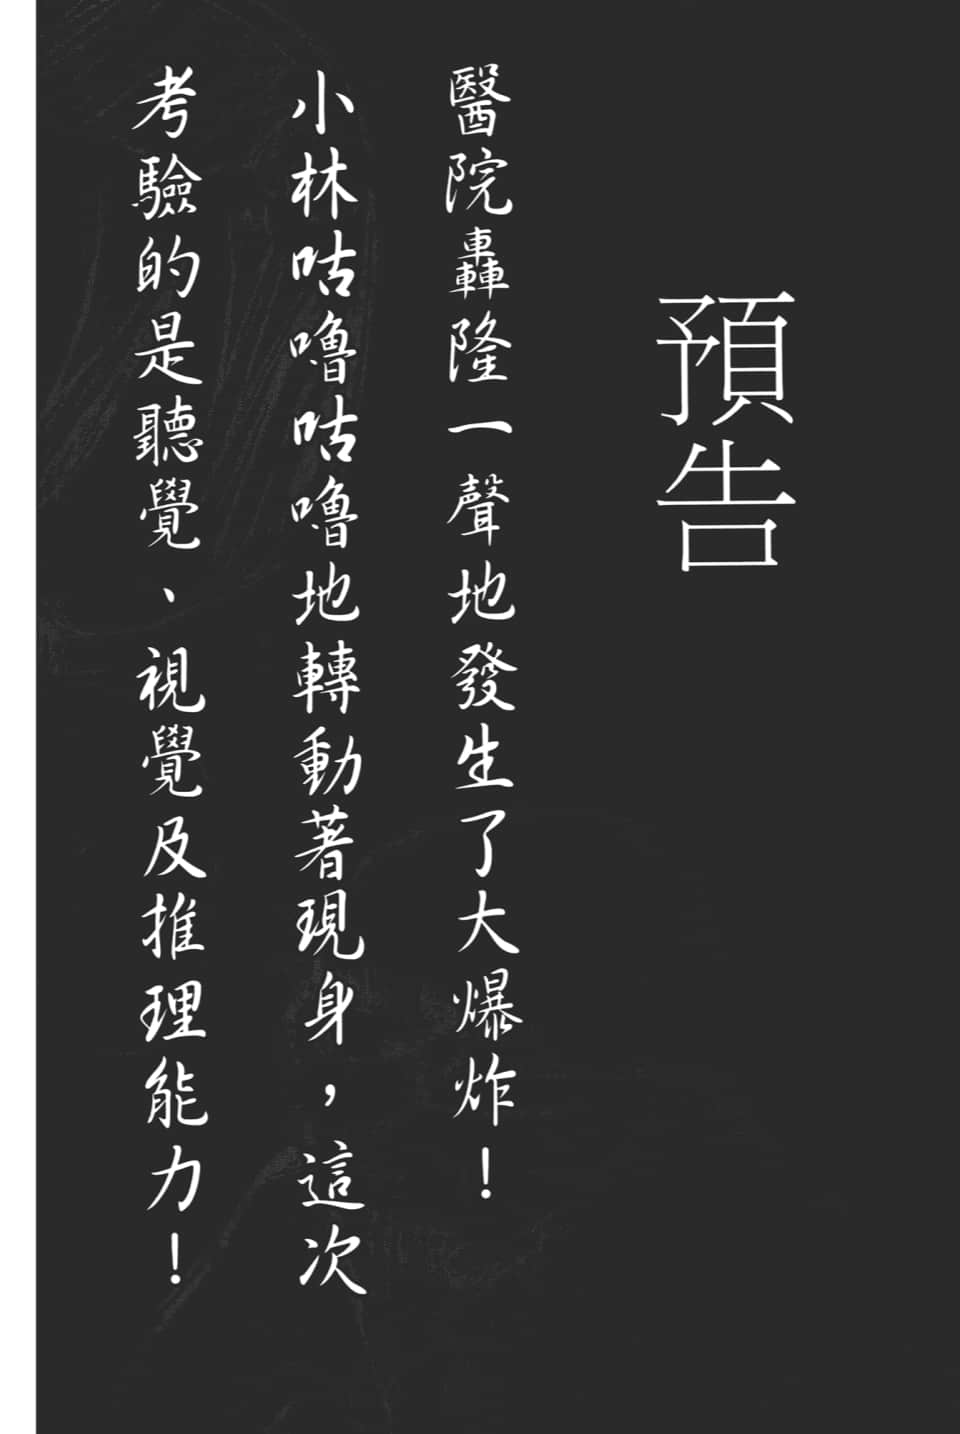 預告
醫院轟隆一聲地發生了大爆炸！
小林咕嚕咕嚕地轉動著現身，這次
考驗的是聽覺、視覺及推理能力！